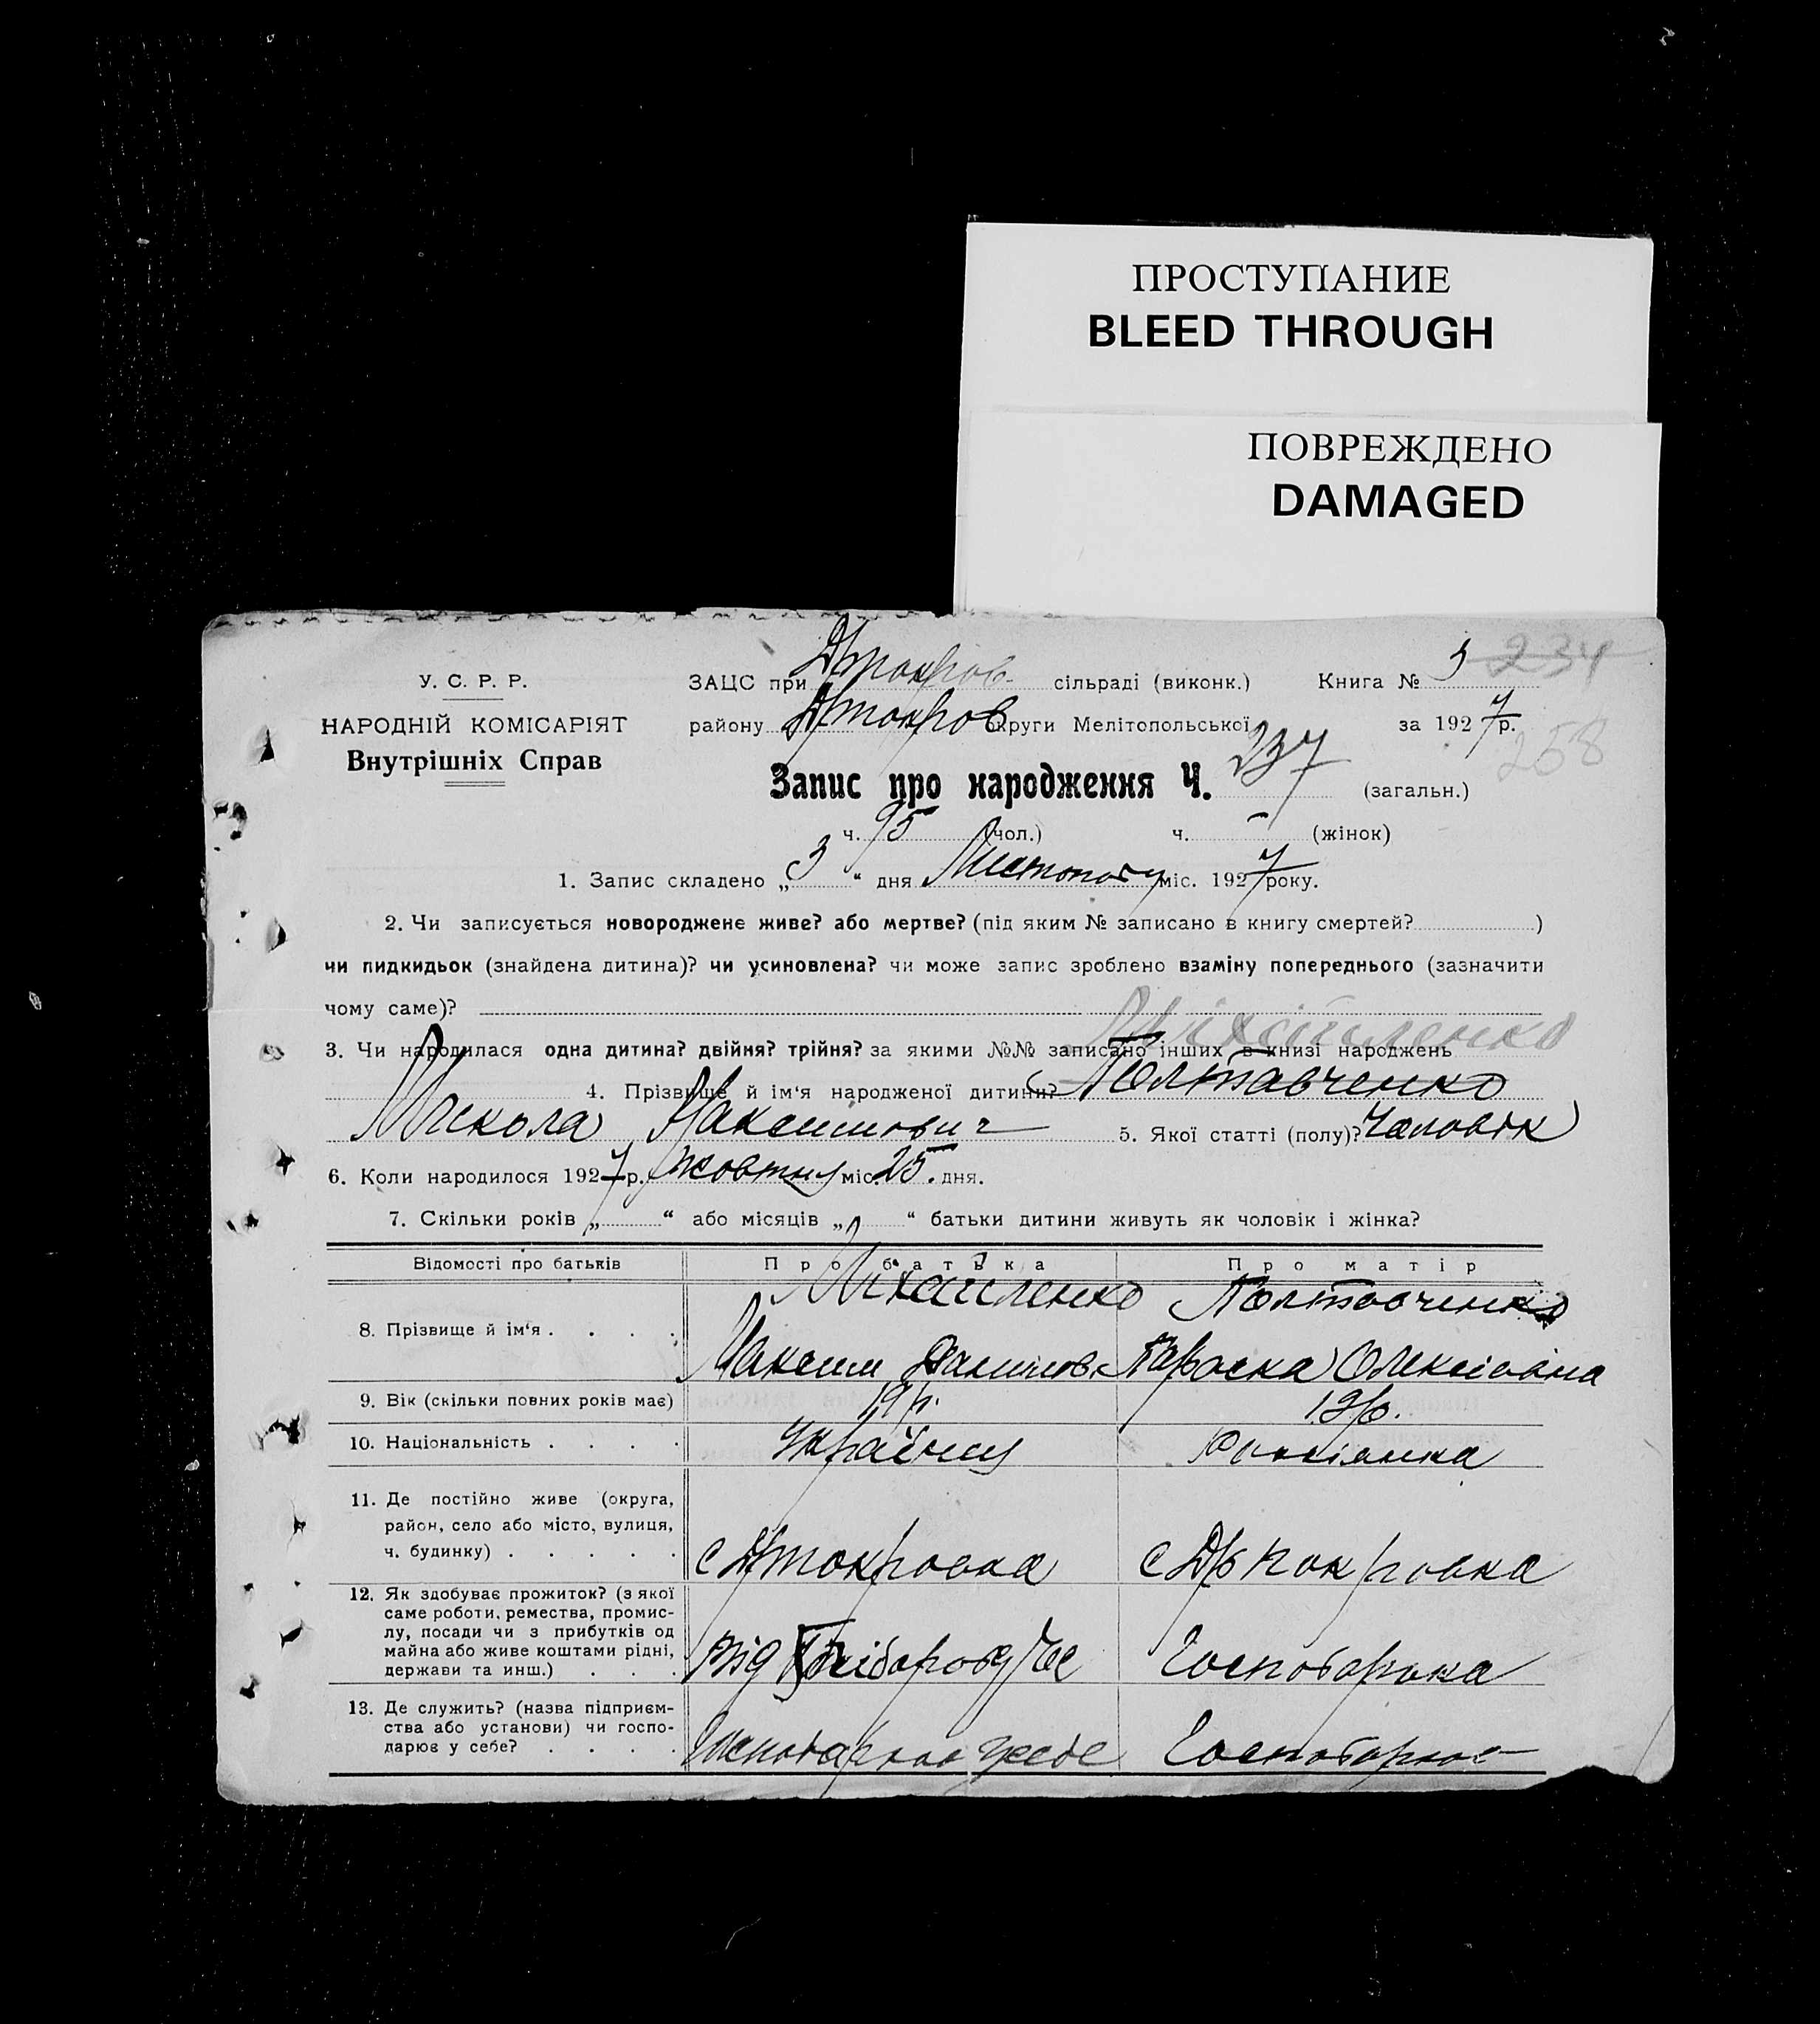 ПРОСТУПАНИЕ
BLEED THROUGH
ПОВРЕЖДЕНО
DAMAGED
У. С. Р. Р.
НАРОДНІЙ КОМІСАРІЯТ
Внутрішніх Справ
ЗАЦС при сільраді (виконк.) Книга № 3 234
району округи Мелітопольської за 1927 р.
258
Запис про народження Ч. 237 (загальн.)
ч. 95 (чол.) ч. - (жінок)
1. Запис складено „3“ дня Листопаду міс. 1927 року.
2. Чи записується новороджене живе? або мертве? (під яким № записано в книгу смертей? )
чи пидкидьок (знайдена дитина)? чи усиновлена? чи може запис зроблено взаміну попереднього (зазначити
чому саме)?
Міхайленко
3. Чи народилася одна дитина? двійня? трійня? за якими №№ записано інших в книзі народжень
4. Прізвище й ім‘я народженої дитини? Полтавченко
Микола Максимович 5. Якої статті (полу)? Чоловік
6. Коли народилося 1927 р. жовтня міс. 25. дня.
7. Скільки років „ “ або місяців „ “ батьки дитини живуть як чоловік і жінка?
Відомості про батьків Про батька Про матір
Міхайленко Полтавченко
8. Прізвище й ім‘я . . . .
Максим Параска Олексіївна
9. Вік (скільки повних років має) 19 р. 19 р.
10. Національність . . . . Українец
11. Де постійно живе (округа,
район, село або місто, вулиця,
ч. будинку) . . . . .
12. Як здобуває прожиток? (з якої
саме роботи, ремества, промис-
лу, посади чи з прибутків од
майна або живе коштами рідні,
держави та инш.) . . . Від Господарка
13. Де служить? (назва підприєм-
ства або установи) чи госпо-
дарює у себе? . . . .